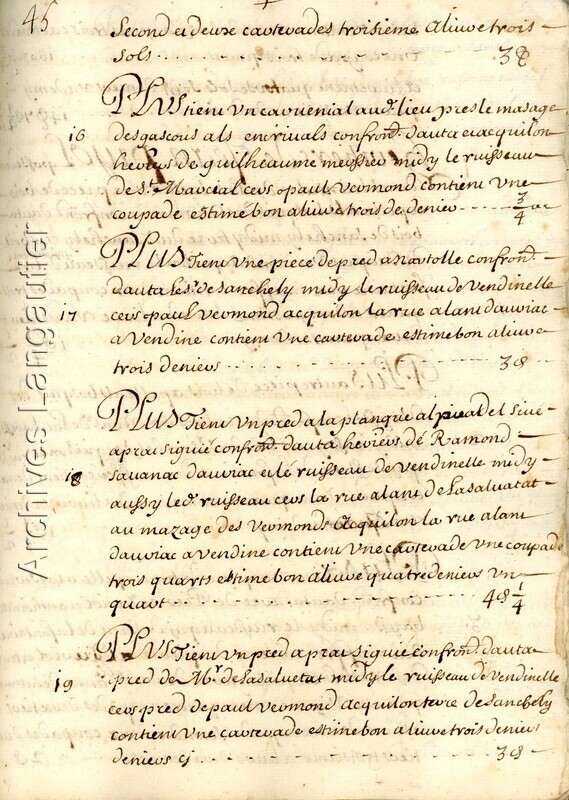 45
Second et deuxe cartevades troisieme aliure trois
sols . . . . . . . . 3 8
16 PLUS tient un canvenial aud. lieu pres le masage
des gascous als enrivals confrond. dauta et acquilon
heriers de guilheaume meissier midy le ruisseau
de St. Marcial cers o paul vermond contient une
coupade estime bon aliure trois de denier . . . . 3/4
17 PLUS Tient une piece de pred a nartolle confrond.
dauta le sr. de sanchely midy le ruisseau de vendinelle
cers o paul vermond acquilon la rue alant dauriac
a vendine contient une cartevade estime bon aliure
trois deniers . . . . . . . . 3 8
18 PLUS Tient un pred a la planque al prat del sive
aprat siguié confrond. dauta heriers de Ramond
savanac dauriac et le ruisseau de vendinelle midy
aussy led. ruisseau cers la rue alant de Lasalvetat
au mazage des vermonds acquilon la rue alant
dauriac a vendine contient une cartevade une coupade
trois quarts estime bon aliure quatre deniers un
quart . . . . . . . . 4 8 1/4
19 PLUS Tient un pred a prat siguié confrond. dauta
pred de Mr. de Lasalvetat midy le ruisseau de vendinelle
cers pred de paul vermond acquilon terre de sanchely
contient une cartevade estime bon aliure trois deniers
deniers cj . . . . . . . . 3 8
Archives Langautier